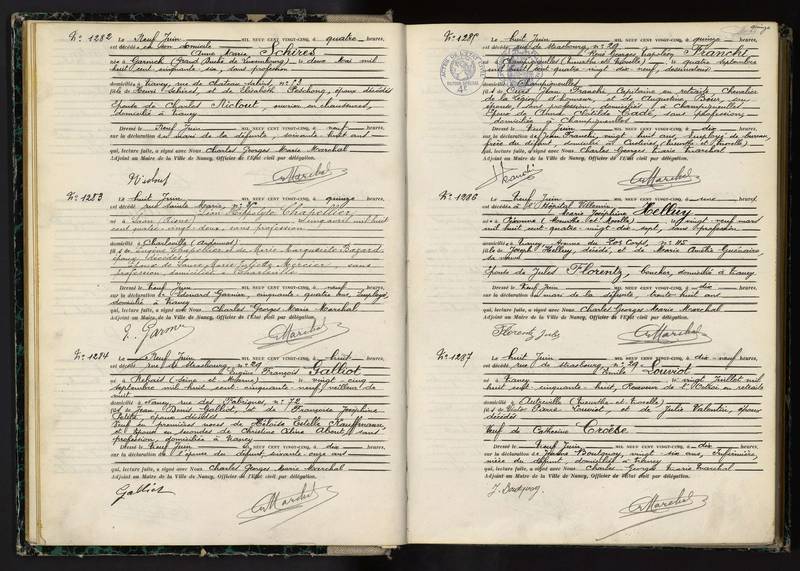 N° 1282
Le Neuf Juin MIL NEUF CENT VINGT-CINQ, à quatre heures,
est décédée en son domicile
Anne Marie Schires
née à Garnich (Grand Duché de Luxembourg) le deux Mai mil
huit cent cinquante six, sans profession
domiciliée à Nancy, rue du Château
fille de Henri Schires, et de Elisabeth Peschong, époux décédés
Epouse de Charles Rictout, ouvrier en chaussures,
domicilié à Nancy
Dressé le Neuf Juin MIL NEUF CENT VINGT-CINQ, à neuf heures,
sur la déclaration du mari de la défunte, soixante huit ans
qui, lecture faite, a signé avec Nous Charles Georges Marie Marchal
Adjoint au Maire de la Ville de Nancy, Officier de l'Etat civil par délégation.
N° 1283
Le huit Juin MIL NEUF CENT VINGT-CINQ, à quinze heures,
est décédé rue Sainte Marie, n°
Léon Hippolyte Chapellier
né à Laon (Aisne) avril mil huit
cent quatre-vingt-deux, sans profession
domicilié à Charleville (Ardennes)
fils de Eugène Chapellier et de Marie Marguerite Bozard,
époux décédés
Epoux de Marie Juliette Mercier, sans
profession, domiciliée à Charleville
Dressé le Neuf Juin MIL NEUF CENT VINGT-CINQ, à neuf heures,
sur la déclaration de Edouard Garnier, cinquante quatre ans, employé
domicilié à Nancy
qui, lecture faite, a signé avec Nous Charles Georges Marie Marchal
Adjoint au Maire de la Ville de Nancy, Officier de l'Etat civil par délégation.
E. Garnier
N° 1284
Le Neuf Juin MIL NEUF CENT VINGT-CINQ, à huit heures,
est décédé rue de Strasbourg n° 29
Eugène François Galliot
né à Rebais (Seine et Marne) le vingt cinq
septembre mil huit cent cinquante neuf, veilleur de
nuit
domicilié à Nancy, rue des Fabriques, n° 72
fils de Jean Denis Galliot, et de Françoise Joséphine
époux décédés
Veuf en premières noces de Héloïse Estelle Kauffmann
et Epoux en secondes de Christine Aline About, sans
profession, domiciliée à Nancy
Dressé le Neuf Juin MIL NEUF CENT VINGT-CINQ, à dix heures,
sur la déclaration de l'épouse du défunt, soixante onze ans
qui, lecture faite, a signé avec Nous Charles Georges Marie Marchal
Adjoint au Maire de la Ville de Nancy, Officier de l'Etat civil par délégation.
Galliot
N° 1285
Le huit Juin MIL NEUF CENT VINGT-CINQ, à quinze heures,
est décédé rue de Strasbourg n° 29
René Georges Napoléon Franchi
né à Champigneulles (Meurthe et Moselle) le quatre septembre
mil huit cent quatre-vingt dix neuf, dessinateur
domicilié à Champigneulles
fils de Cyrus Jean Franchi, Capitaine en retraite, Chevalier
de la Légion d'honneur, et de Augustine Boër, son
épouse, sans profession, domiciliés à Champigneulles
Epoux de Anna Clotilde Cadé, sans profession,
domiciliée à Champigneulles
Dressé le Neuf Juin MIL NEUF CENT VINGT-CINQ, à dix heures,
sur la déclaration de Jean Franchi, vingt huit ans, employé de bureau
frère du défunt, domicilié à Custines (Meurthe et Moselle)
qui, lecture faite, a signé avec Nous Charles Georges Marie Marchal
Adjoint au Maire de la Ville de Nancy, Officier de l'Etat civil par délégation.
Franchi
N° 1286
Le Neuf Juin MIL NEUF CENT VINGT-CINQ, à onze heures,
est décédée à l'Hôpital Villemin
Marie Joséphine Helluy
née à Giriviller (Meurthe et Moselle) le vingt-neuf mars
mil huit cent quatre-vingt dix sept, sans profession
domiciliée à Nancy, Avenue du 20e Corps, n° 115
fille de Joseph Helluy, décédé, et de Marie
sa veuve
Epouse de Jules Florentz, boucher, domicilié à Nancy
Dressé le Neuf Juin MIL NEUF CENT VINGT-CINQ, à dix heures,
sur la déclaration du mari de la défunte, trente huit ans
qui, lecture faite, a signé avec Nous Charles Georges Marie Marchal
Adjoint au Maire de la Ville de Nancy, Officier de l'Etat civil par délégation.
Florentz Jules
N° 1287
Le huit Juin MIL NEUF CENT VINGT-CINQ, à dix-neuf heures,
est décédé, rue de Strasbourg, n° 29
Emile Louviot
né à Nancy le vingt Juillet mil
huit cent cinquante huit, Receveur de l'Octroi en retraite
domicilié à Autreville (Meurthe et Moselle)
fils de Victor Pierre Louviot, et de Julie Valentin, époux
décédés
Veuf de Catherine Croëbe
Dressé le Neuf Juin MIL NEUF CENT VINGT-CINQ, à dix heures,
sur la déclaration de Jeanne Boutgnay, vingt six ans, Infirmière,
nièce du défunt, domiciliée à Nancy
qui, lecture faite, a signé avec Nous Charles Georges Marie Marchal
Adjoint au Maire de la Ville de Nancy, Officier de l'Etat civil par délégation.